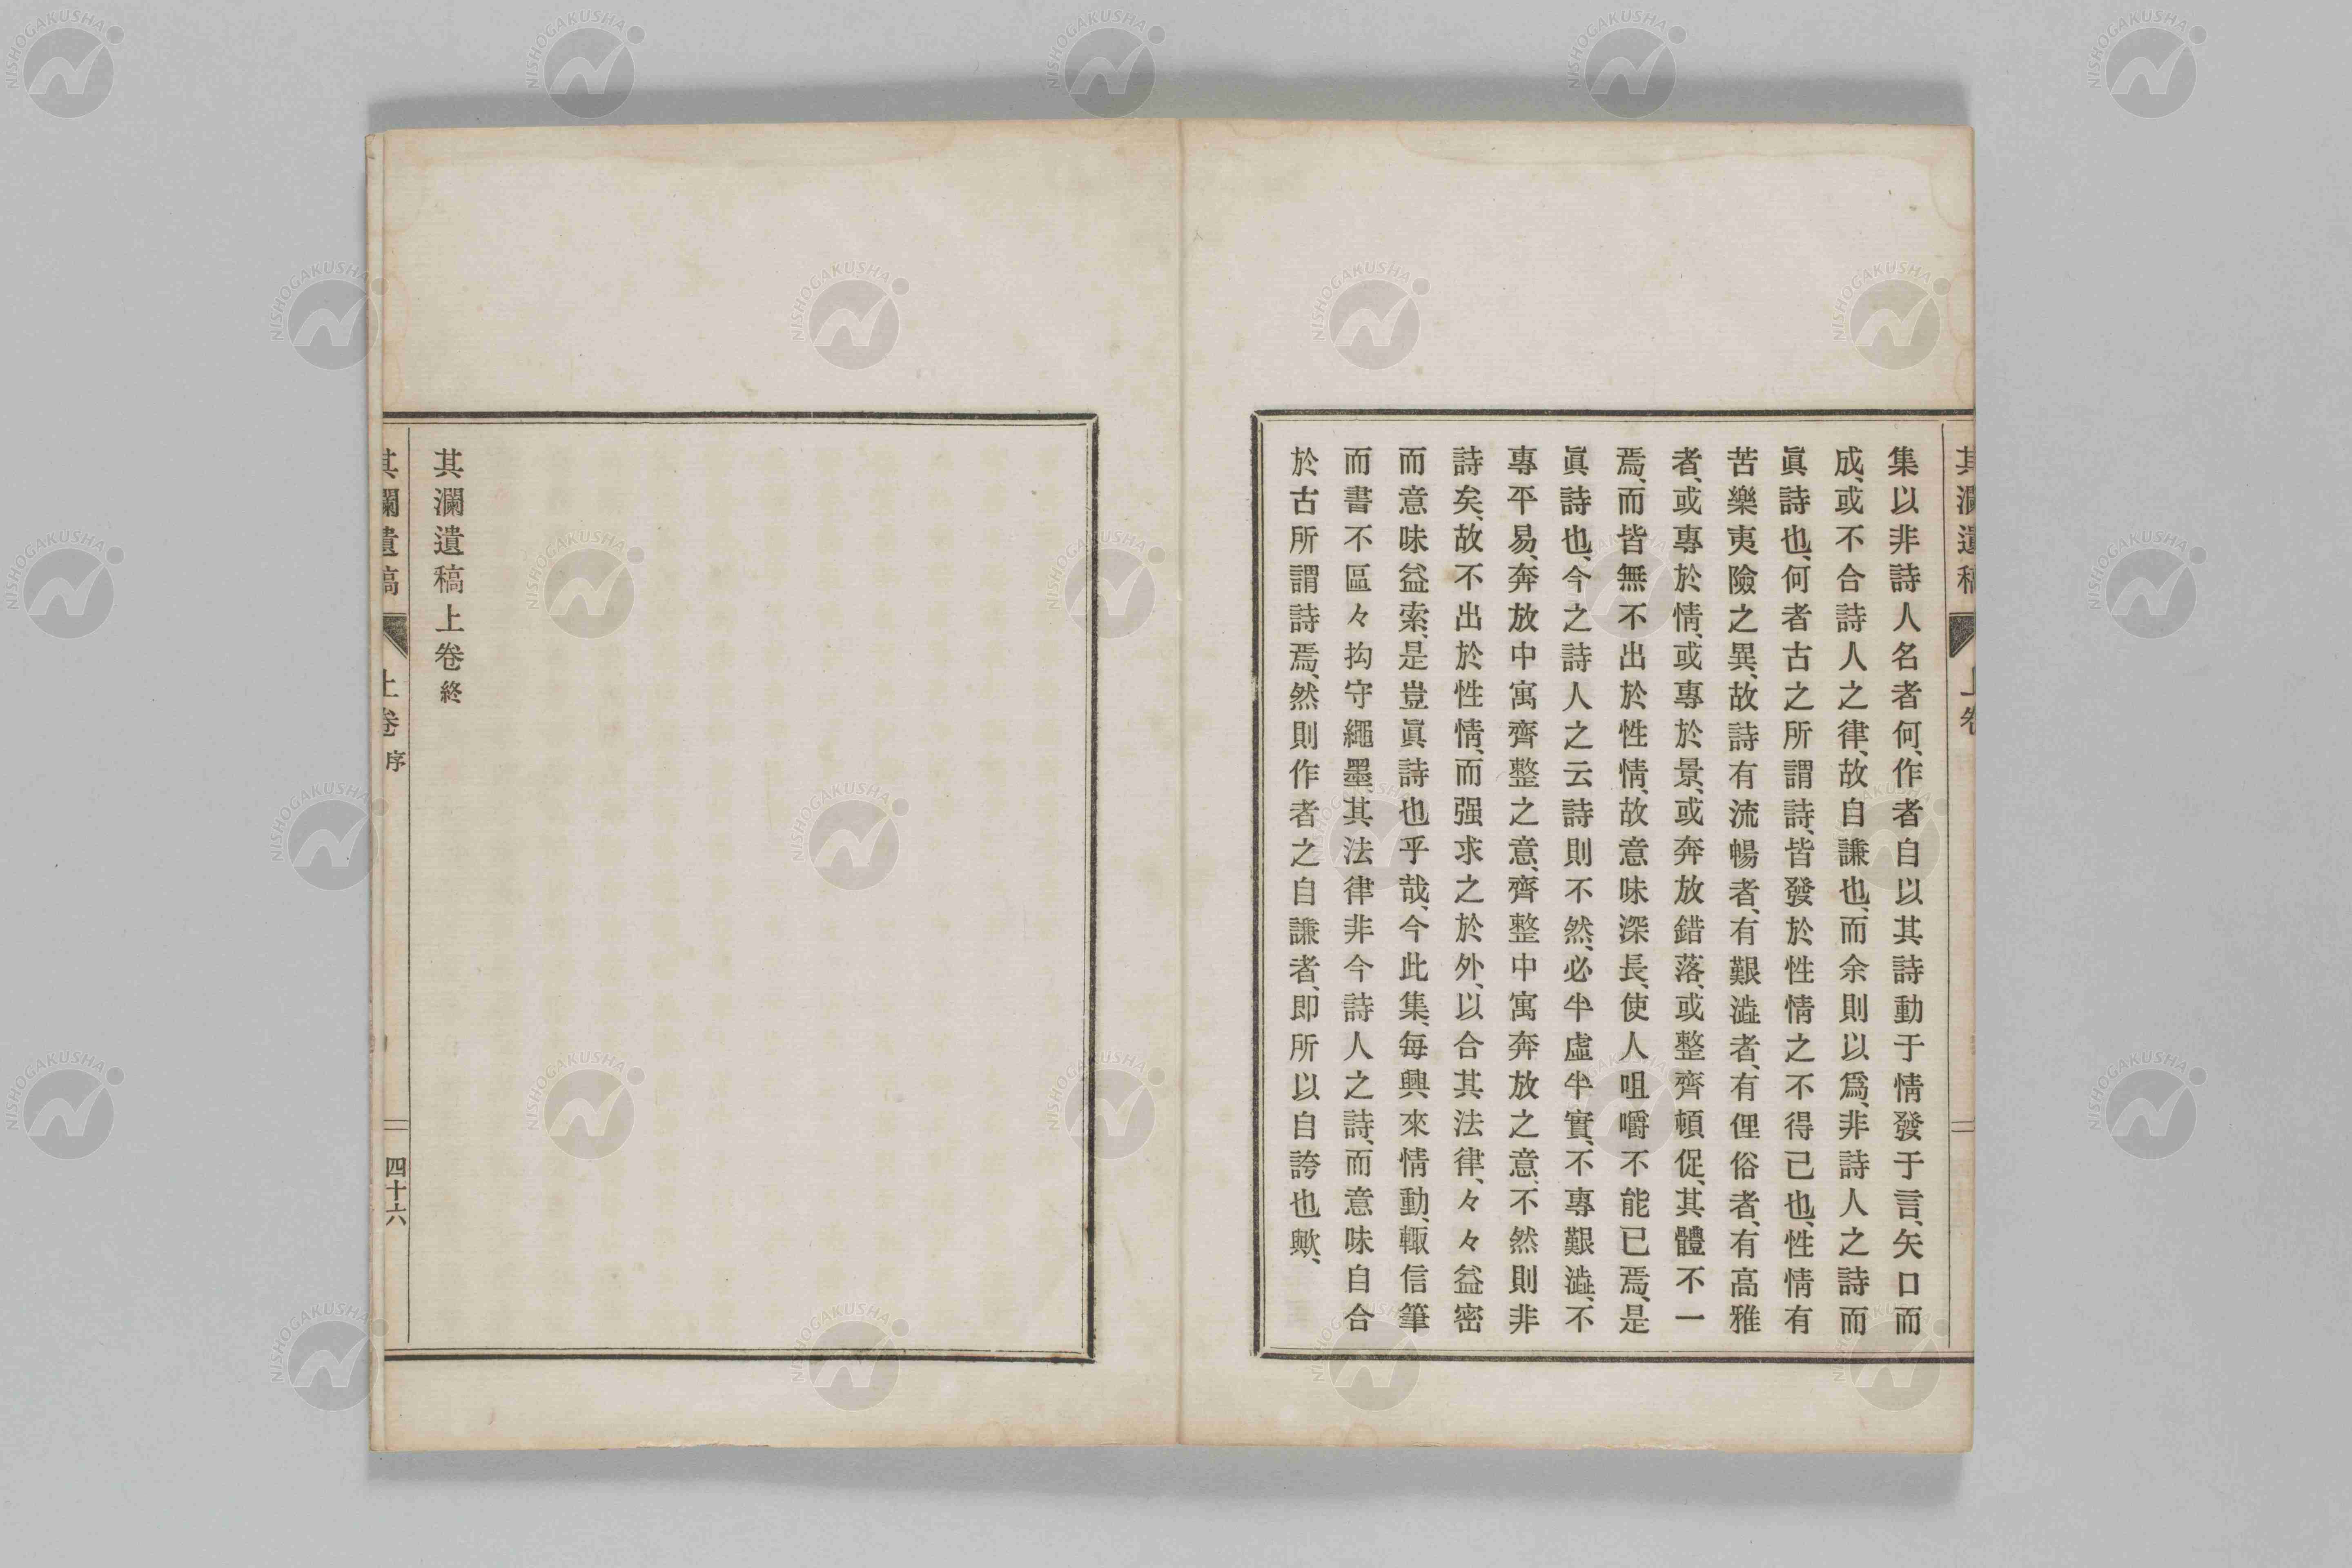 集以非詩人名者何、作者自以其詩動于情發于言、矢口而
成、或不合詩人之律、故自謙也、而余則以爲、非詩人之詩而
眞詩也、何者古之所謂詩、皆發於性情之不得已也、性情有
苦樂夷險之異、故詩有流暢者、有艱澁者、有俚俗者、有高雅
者、或專於情、或專於景、或奔放錯落、或整齊頓促、其體不一
焉、而皆無不出於性情、故意味深長、使人咀嚼不能已焉、是
眞詩也、今之詩人之云詩則不然、必半虛半實、不專艱澁、不
專平易、奔放中寓齊整之意、齊整中寓奔放之意、不然則非
詩矣、故不出於性情、而强求之於外、以合其法律、々々益密
而意味益索、是豈眞詩也乎哉、今此集、每興來情動、輙信筆
而書不區々拘守繩墨、其法律非今詩人之詩、而意味自合
於古所謂詩焉、然則作者之自謙者、即所以自誇也歟、
其瀾遺稿上卷終
其瀾遺稿 上卷 序 四十六
其瀾遺稿 上卷
NISHOGAKUSHA